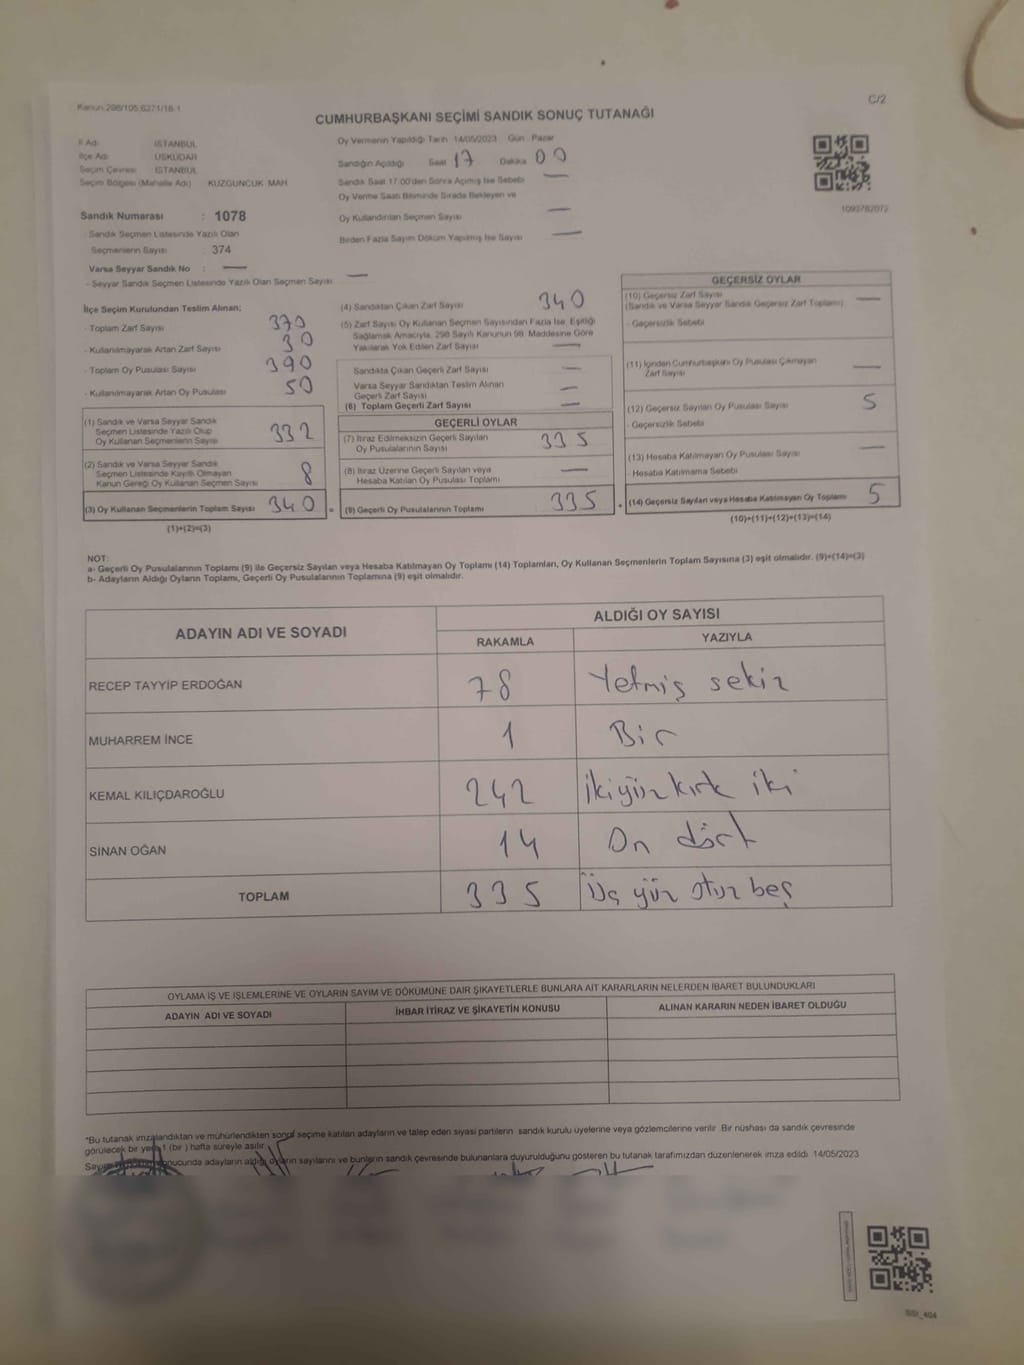 Kanun 298/105,6271/18-1
C/2
CUMHURBAŞKANI SEÇİMİ SANDIK SONUÇ TUTANAĞI
İl Adı İSTANBUL
İlçe Adı ÜSKÜDAR
Seçim Çevresi İSTANBUL
Seçim Bölgesi (Mahalle Adı) KUZGUNCUK MAH
Sandık Numarası : 1078
Sandık Seçmen Listesinde Yazılı Olan
Seçmenlerin Sayısı : 374
Varsa Seyyar Sandık No : —
- Seyyar Sandık Seçmen Listesinde Yazılı Olan Seçmen Sayısı —
Oy Vermenin Yapıldığı Tarih 14/05/2023 Gün Pazar
Sandığın Açıldığı Saat 17 Dakika 00
Sandık Saat 17:00'den Sonra Açılmış İse Sebebi —
Oy Verme Saati Bitiminde Sırada Bekleyen ve
Oy Kullandırılan Seçmen Sayısı —
Birden Fazla Sayım Döküm Yapılmış İse Sayısı —
1093782072
İlçe Seçim Kurulundan Teslim Alınan;
- Toplam Zarf Sayısı 370
- Kullanılmayarak Artan Zarf Sayısı 30
- Toplam Oy Pusulası Sayısı 390
- Kullanılmayarak Artan Oy Pusulası 50
(1) Sandık ve Varsa Seyyar Sandık
Seçmen Listesinde Yazılı Olup
Oy Kullanan Seçmenlerin Sayısı 332
(2) Sandık ve Varsa Seyyar Sandık
Seçmen Listesinde Kayıtlı Olmayan
Kanun Gereği Oy Kullanan Seçmen Sayısı 8
(3) Oy Kullanan Seçmenlerin Toplam Sayısı 340 =
(1)+(2)=(3)
(4) Sandıktan Çıkan Zarf Sayısı 340
(5) Zarf Sayısı Oy Kullanan Seçmen Sayısından Fazla İse, Eşitliği
Sağlamak Amacıyla, 298 Sayılı Kanunun 98. Maddesine Göre
Yakılarak Yok Edilen Zarf Sayısı —
Sandıkta Çıkan Geçerli Zarf Sayısı —
Varsa Seyyar Sandıktan Teslim Alınan
Geçerli Zarf Sayısı —
(6) Toplam Geçerli Zarf Sayısı —
GEÇERLİ OYLAR
(7) İtiraz Edilmeksizin Geçerli Sayılan
Oy Pusulalarının Sayısı 335
(8) İtiraz Üzerine Geçerli Sayılan veya
Hesaba Katılan Oy Pusulası Toplamı —
(9) Geçerli Oy Pusulalarının Toplamı 335 +
GEÇERSİZ OYLAR
(10) Geçersiz Zarf Sayısı —
(Sandık ve Varsa Seyyar Sandık Geçersiz Zarf Toplamı)
- Geçersizlik Sebebi
(11) İçinden Cumhurbaşkanı Oy Pusulası Çıkmayan
Zarf Sayısı —
(12) Geçersiz Sayılan Oy Pusulası Sayısı 5
- Geçersizlik Sebebi
(13) Hesaba Katılmayan Oy Pusulası Sayısı —
- Hesaba Katılmama Sebebi
(14) Geçersiz Sayılan veya Hesaba Katılmayan Oy Toplamı 5
(10)+(11)+(12)+(13)=(14)
NOT:
a- Geçerli Oy Pusulalarının Toplamı (9) ile Geçersiz Sayılan veya Hesaba Katılmayan Oy Toplamı (14) Toplamları, Oy Kullanan Seçmenlerin Toplam Sayısına (3) eşit olmalıdır. (9)+(14)=(3)
b- Adayların Aldığı Oyların Toplamı, Geçerli Oy Pusulalarının Toplamına (9) eşit olmalıdır.
ADAYIN ADI VE SOYADI ALDIĞI OY SAYISI
RAKAMLA YAZIYLA
RECEP TAYYİP ERDOĞAN 78 Yetmiş sekiz
MUHARREM İNCE 1 Bir
KEMAL KILIÇDAROĞLU 242 İkiyüz kırk iki
SİNAN OĞAN 14 On dört
TOPLAM 335 Üç yüz otuz beş
OYLAMA İŞ VE İŞLEMLERİNE VE OYLARIN SAYIM VE DÖKÜMÜNE DAİR ŞİKAYETLERLE BUNLARA AİT KARARLARIN NELERDEN İBARET BULUNDUKLARI
ADAYIN ADI VE SOYADI İHBAR İTİRAZ VE ŞİKAYETİN KONUSU ALINAN KARARIN NEDEN İBARET OLDUĞU
*Bu tutanak imzalandıktan ve mühürlendikten sonra seçime katılan adayların ve talep eden siyasi partilerin sandık kurulu üyelerine veya gözlemcilerine verilir. Bir nüshası da sandık çevresinde
görülecek bir yere 1 (bir) hafta süreyle asılır.
Sayım sonucunda adayların aldığı oyların sayılarını ve bunların sandık çevresinde bulunanlara duyurulduğunu gösteren bu tutanak tarafımızdan düzenlenerek imza edildi 14/05/2023